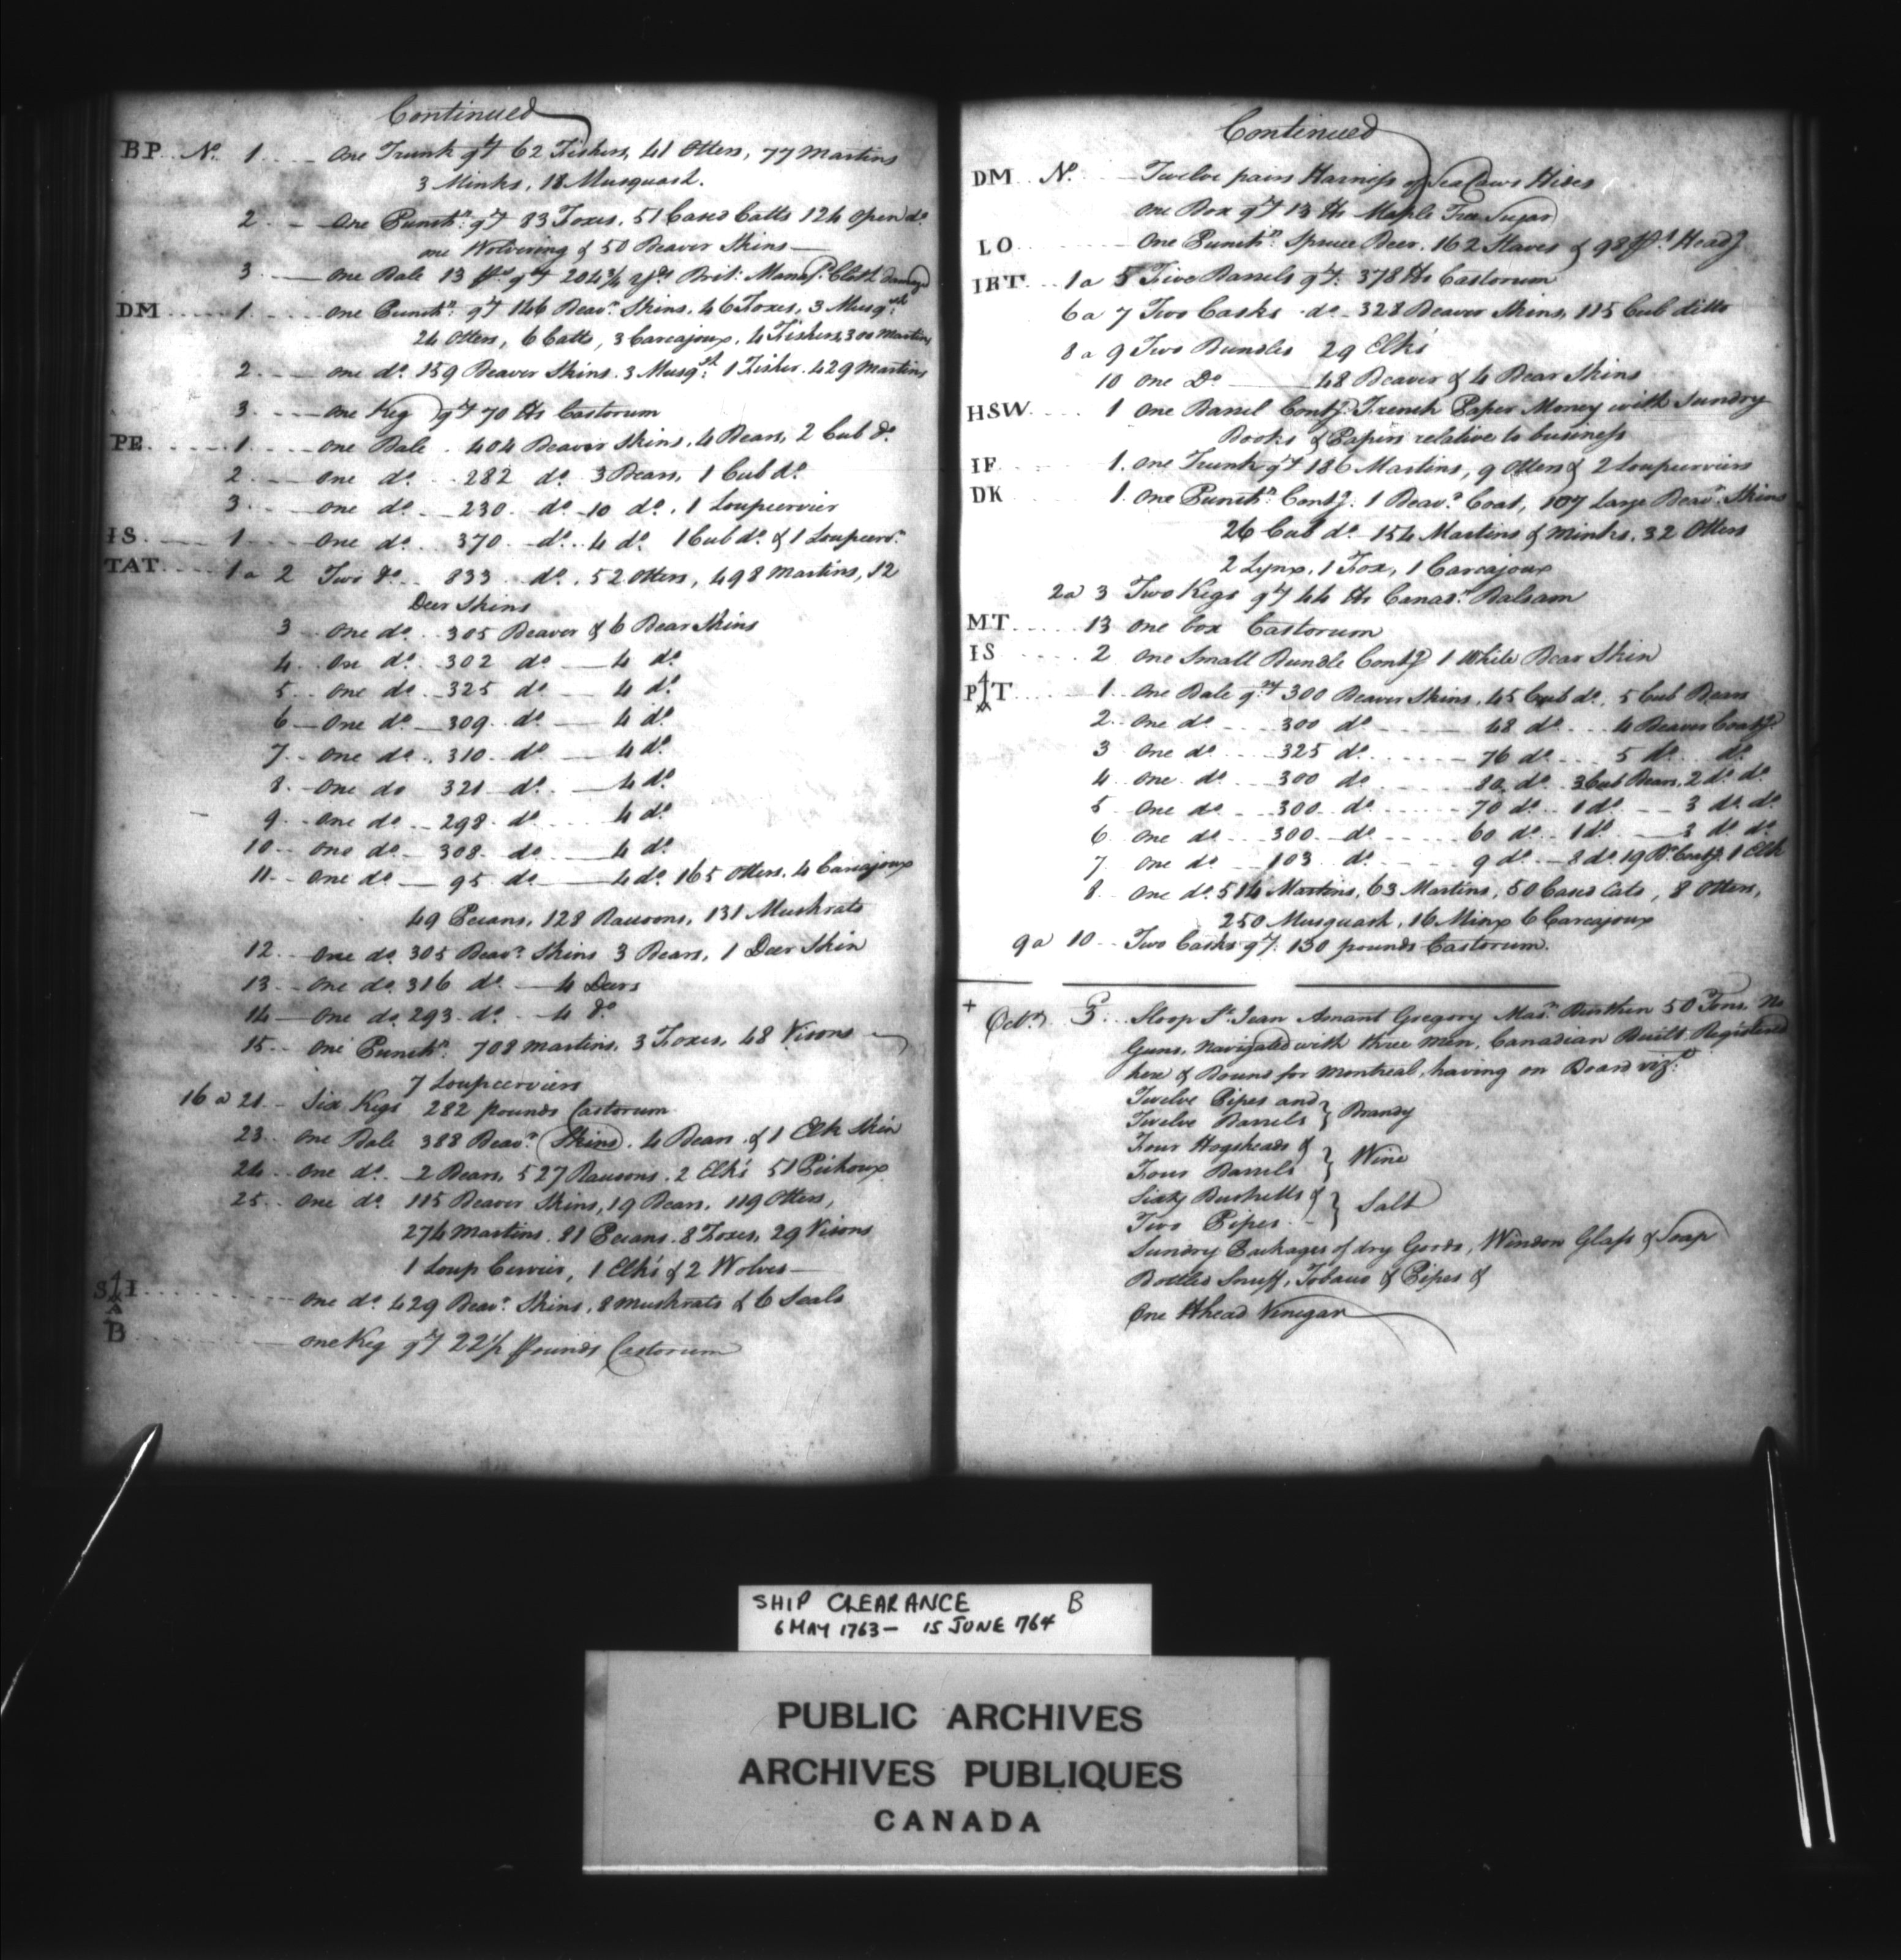 Continued
BP. No. 1 One Trunk qt 62 Fishers, 41 Otters, 77 Martins
3 Minks, 18 Musquash.
2 One Punchn. qt 83 Foxes, 51 Cased Catts 124 open do
one Wolvering & 50 Beaver Skins
3 One Bale 13 ps qty 204 3/4 yds Brit: Manafs. Cloth Damaged
DM 1 One Punchn. qt 146 Beavr. Skins, 46 Foxes, 3 Musqsh
24 Otters, 6 Catts, 3 Carcajoux, 4 Fishers, 300 Martins
2 One do. 159 Beaver Skins. 3 Musqsh. 1 Fisher. 429 Martins
3 One Keg qt 70 lbs Castorum
PE 1 One Bale 404 Beaver Skins, 4 Bears, 2 Cub do.
2 One do. 282 do. 3 Bears, 1 Cub do.
3 One do. 230 do. 10 do. 1 Loupcervier
IS 1 One do. 370 do. 4 do. 1 Cub do. & 1 Loupcerv.
TAT 1 a 2 Two do. 833 do. 52 Otters, 498 Martins, 12
Deer Skins
3 One do. 305 Beaver & 6 Bear Skins
4 One do. 302 do 4 do.
5 One do. 325 do 4 do.
6 One do. 309 do 4 do.
7 One do. 310 do 4 do.
8 One do 321 do. 4 do.
9 One do. 298 do. 4 do.
10 One do 308 do 4 do.
11 One do 95 do 4 do. 165 Otters. 4 Carcajoux
49 Pecans, 128 Racoons, 131 Mushrats
12 One do. 305 Beavr. Skins 3 Bears, 1 Deer Skin
13 One do. 316 do. 4 Deers
14 One do. 293 do. 4 do.
15 One Punchn. 708 martins, 3 Foxes, 48 Visons
7 Loupcerviers
16 a 21 Six Kegs 282 pounds Castorum
23 One Bale 388 Beavr. Skins. 4 Bears & 1 Elk Skin
24 One do. 2 Bears, 527 Racoons. 2 Elks 51 Pichoux
25 One do. 115 Beaver Skins, 19 Bears, 119 Otters,
274 Martins. 81 Pecans. 8 Foxes, 29 Visons
1 Loup Cervier, 1 Elks & 2 Wolves
S I One do. 429 Beavr. Skins, 8 mushrats & 6 Seals
B One Keg qt 22 1/2 pounds Castorum
Continued
DM No. Twelve pairs Harness of Sea Cows Hides
One Box qt 13 lbs Maple Tree Sugar
LO One Punchn. Spruce Beer. 162 Staves & 98 ps Headg
IRT 1 a 5 Five Barrels qt. 378 lbs Castorum
6 a 7 Two Casks do. 328 Beaver Skins, 115 Cub ditto
8 a 9 Two Bundles 29 Elks
10 One Do 48 Beaver & 4 Bear Skins
HSW 1 One Barrel Contg. French Paper Money with Sundry
Books & Papers relative to business
IF 1. One Trunk qt 186 Martins, 9 Otters & 2 Loupcerviers
DK 1. One Punchn. Contg. 1 Beavr. Coat, 107 Large Beavr. Skins
26 Cub do. 154 Martins & Minks, 32 Otters
2 Lynx, 1 Fox, 1 Carcajoux
2 a 3 Two Kegs qt 44 lbs Canadn. Balsam
MT 13 One box Castorum
IS 2 One Small Bundle Contg 1 White Bear Skin
P T 1 One Bale qt 300 Beaver Skins, 45 Cub do. 5 Cub Bears
2 One do. 300 do 48 do. 4 Beaver Coatg.
3 One do 325 do. 76 do. 5 do. do.
4 One do. 300 do. 80 do. 3 Cub Bears, 2 do. do.
5 One do 300 do. 70 do. 1 do. 3 do. do
6 One do. 300 do. 60 do. 1 do. 3 do. do.
7 One do 103 do. 9 do. 8 do. Contg. 1 Elk
8 One do. 514 Martins, 63 Martins, 50 Cased Cats, 8 Otters,
250 Musquash, 16 Minx 6 Carcajoux
9 a 10 Two Casks qt. 130 pounds Castorum.
+ Octr. 3. Sloop St. Jean Amant Gregory Masr. Burthen 50 Tons, No
Guns, navigated with three men, Canadian Built Registered
here & Bound for Montreal, having on Board vizt.
Twelve Pipes and
Twelve Barrels } Brandy
Four Hogsheads &
Four Barrels } Wine
Sixty Bushells &
Two Pipes } Salt
Sundry Packages of dry Goods, Window Glass & Soap
Bottled Snuff, Tobacco & Pipes &
One Hhead Vinegar
SHIP CLEARANCE B
6 MAY 1763 - 15 JUNE 764
PUBLIC ARCHIVES
ARCHIVES PUBLIQUES
CANADA